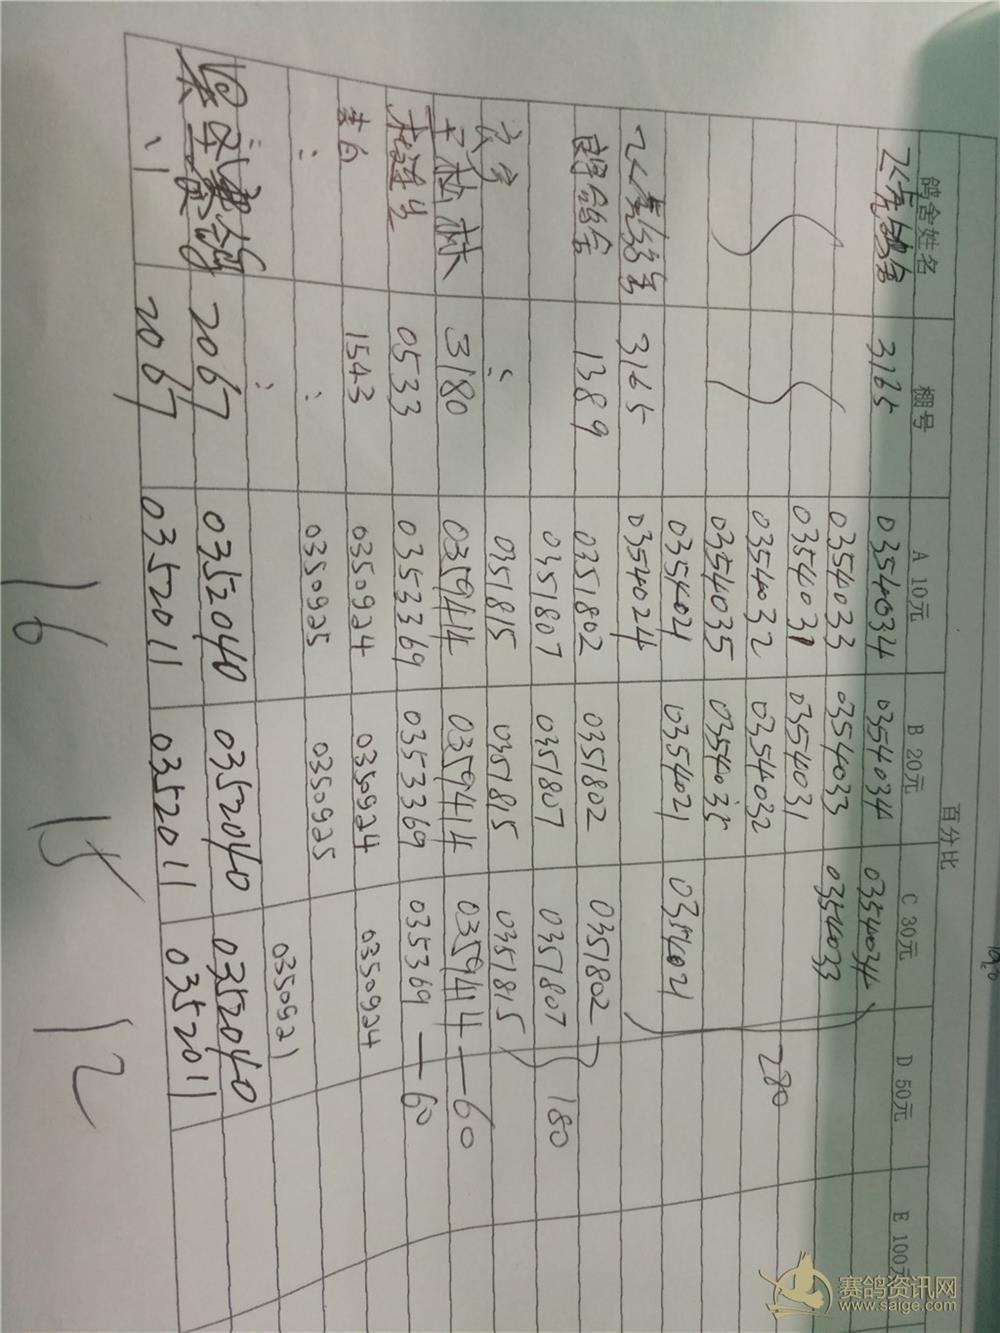 百分比
鸽舍姓名 棚号 A 10元 B 20元 C 30元 D 50元 E 100元
3165 0354034 0354034 0354034
0354033 0354033 0354033
0354031 0354031
0354032 0354032 280
0354035 0354035
0354021 0354021 0354021
3165 0354024
1389 0351802 0351802 0351802
0351807 0351807 0351807 180
0351815 0351815 0351815
3180 0359414 0359414 0359414 — 60
杜连生 0533 0353369 0353369 035369 — 60
1543 0350924 0350924 0350924
0350925 0350925
0350921
2067 0352040 0352040 0352040
2067 0352011 0352011 0352011
16 15 12
赛鸽资讯网
www.saige.com